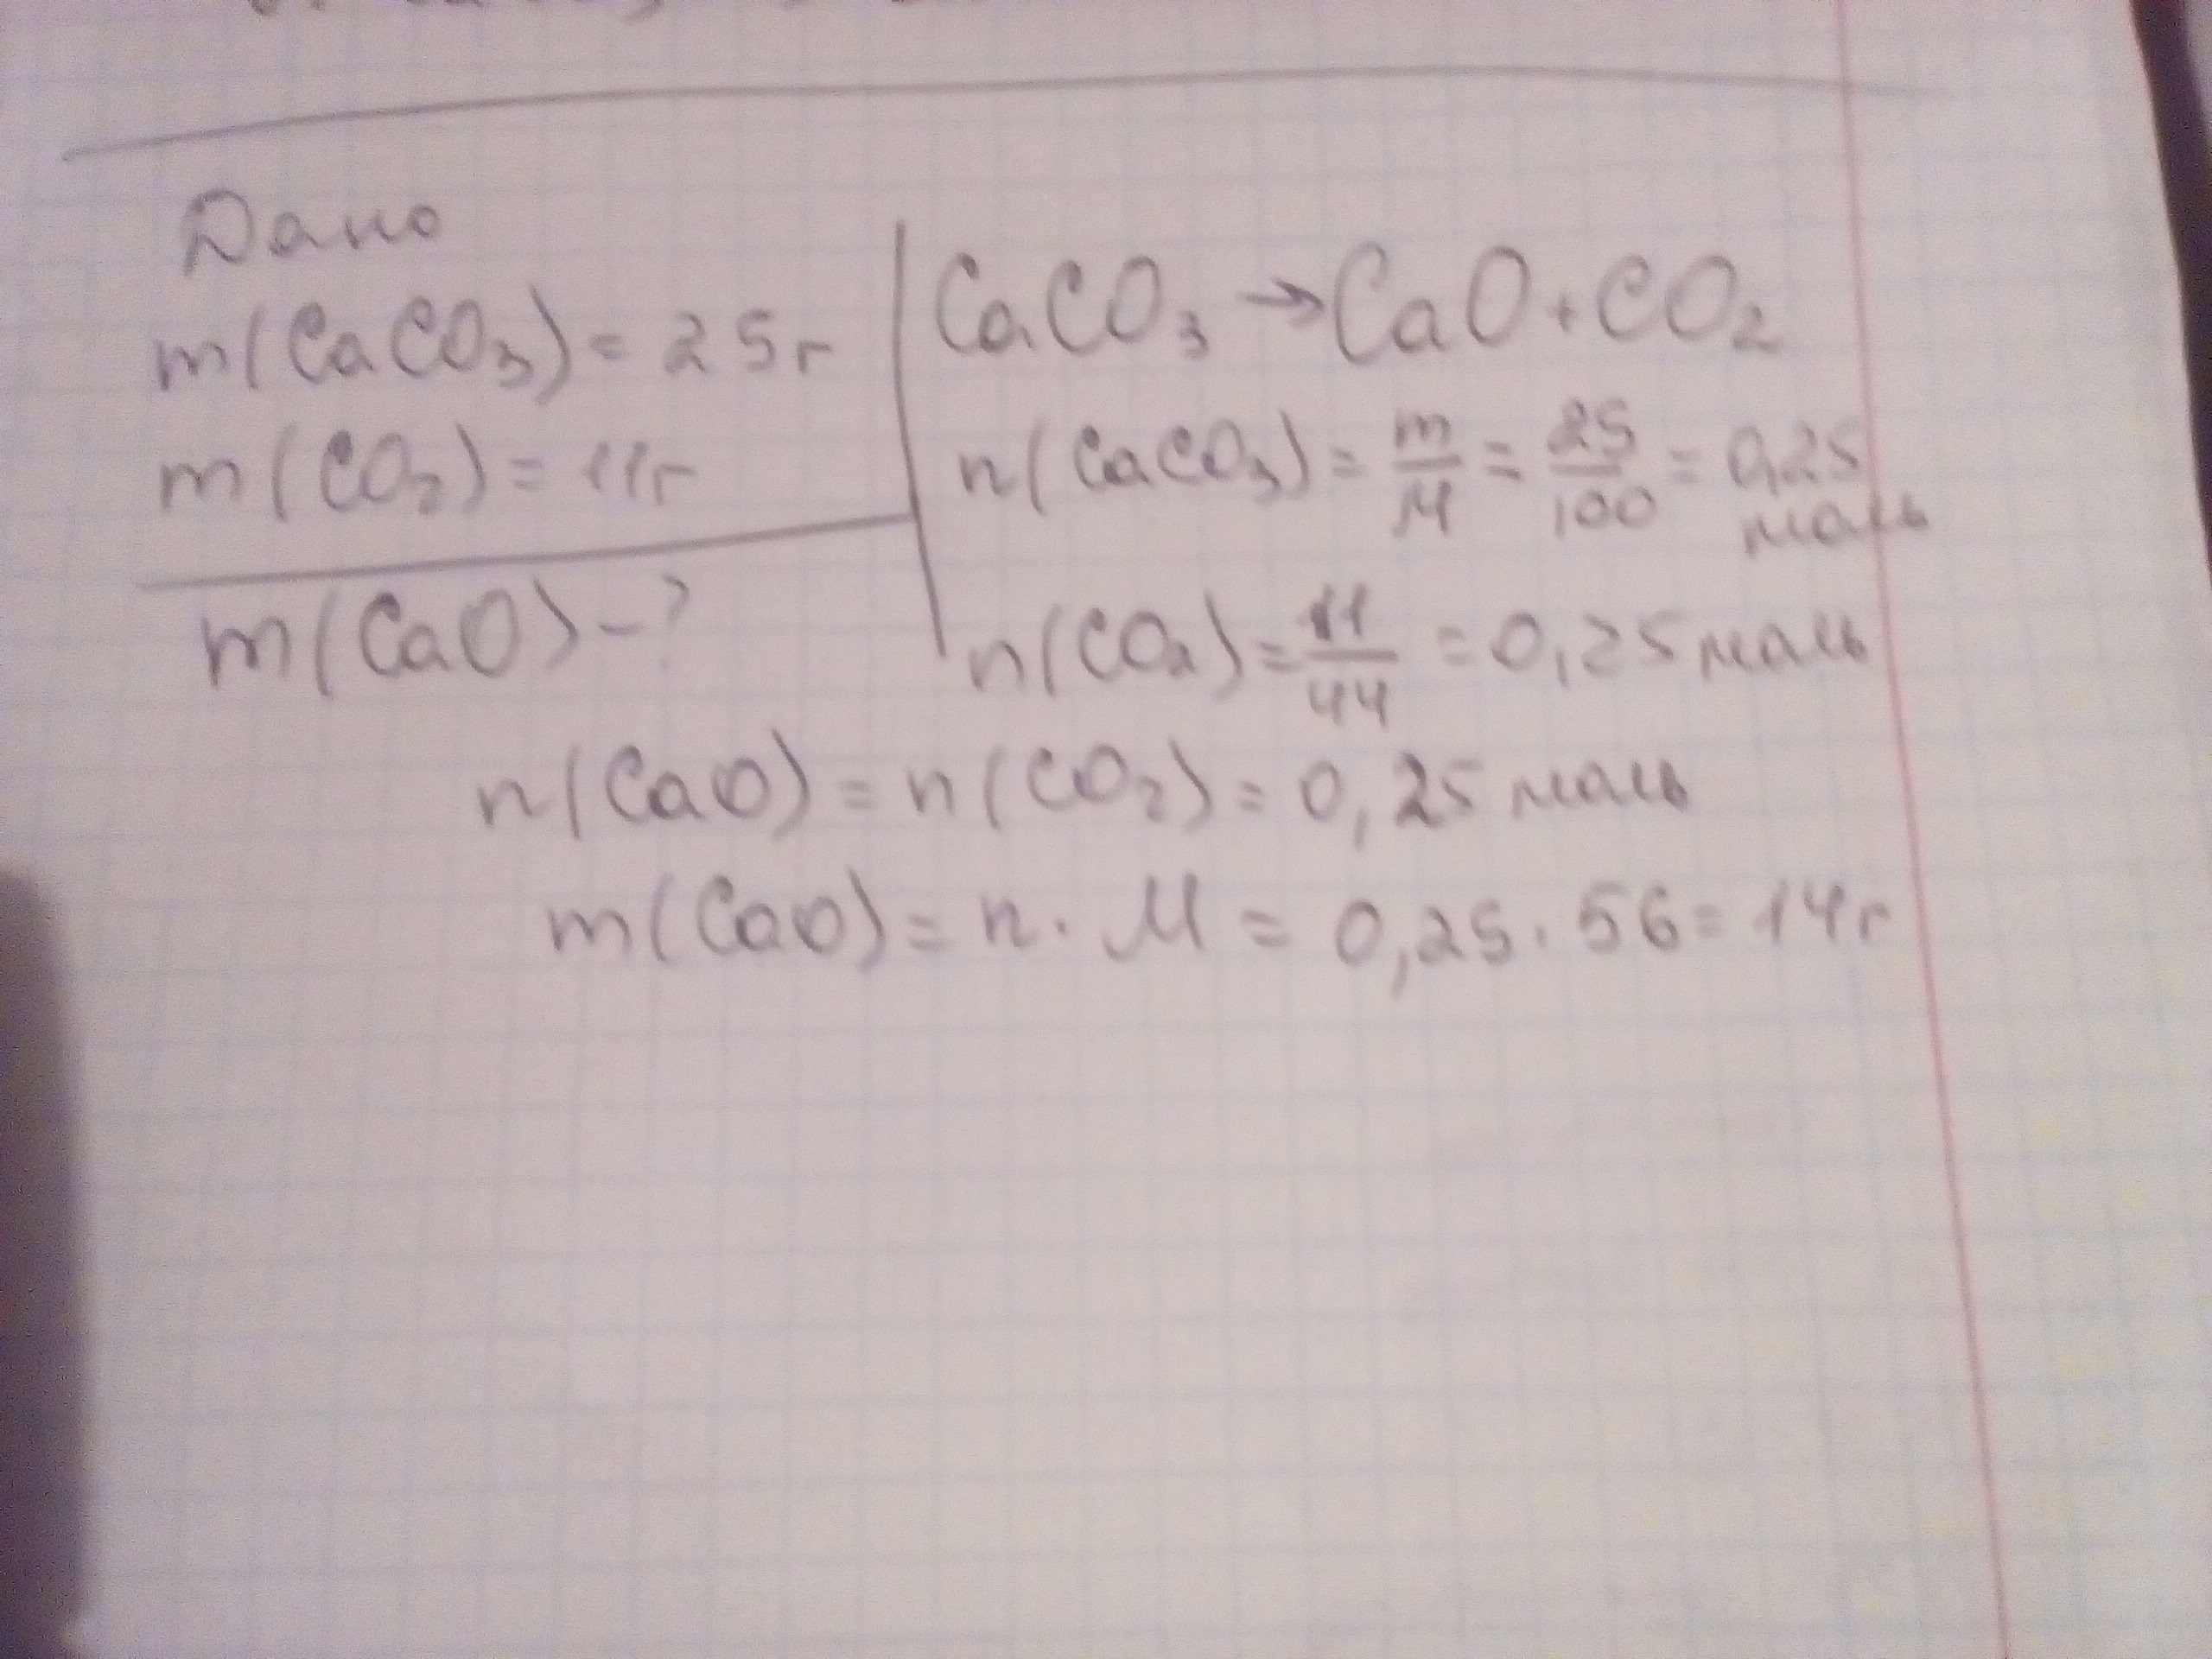 Дано
m(CaCO₃) = 25г
m(CO₂) = 11г
m(CaO) - ?
CaCO₃ → CaO + CO₂
n(CaCO₃) = m/M = 25/100 = 0,25 моль
n(CO₂) = 11/44 = 0,25 моль
n(CaO) = n(CO₂) = 0,25 моль
m(CaO) = n · M = 0,25 · 56 = 14г